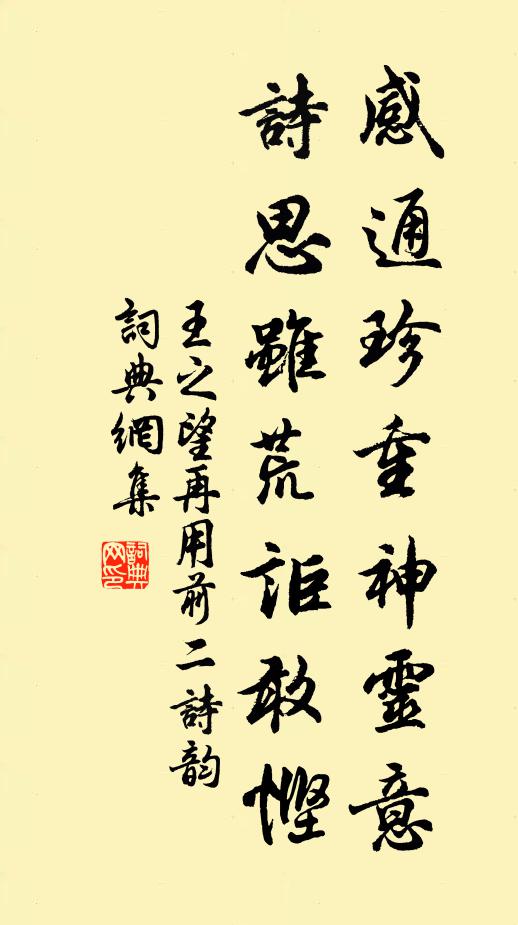 感通珍重神靈意
詩思雖荒詎敢慳
王之望再用前二詩韵
詞典網集
詞典
网印